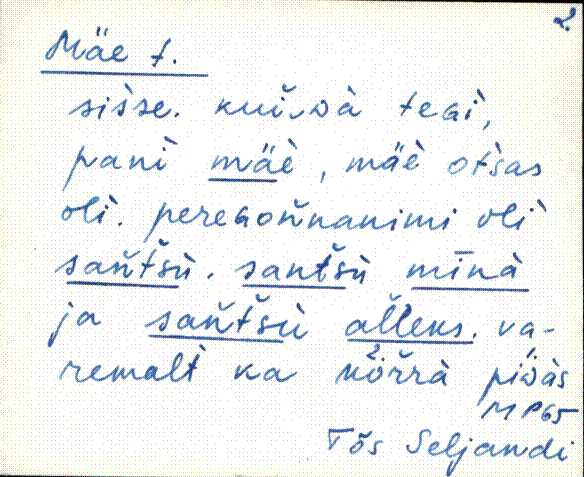 2.
Mäe t.
sisse. kui̬ɷà teGì,
panì mäè, mäè otsas
olì. pereGoňnanimi olì
saňtšù. santšù mīnà
ja saňtšù aľľeks. va-
remalt ka nöřrà piɷàs
MP65
Tõs Seljandi